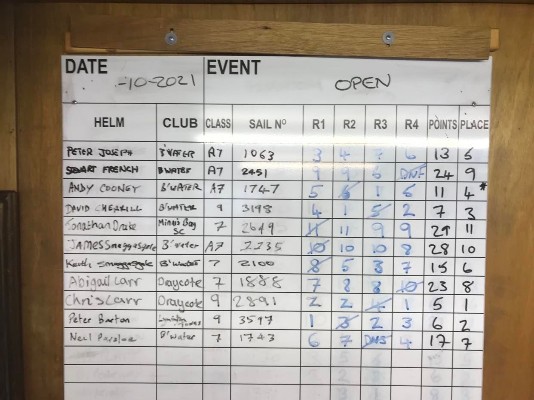 DATE -10-2021 EVENT OPEN
HELM CLUB CLASS SAIL Nº R1 R2 R3 R4 POINTS PLACE
PETER JOSEPH B'WATER A7 1063 3 4 6 13 5
STEWART FRENCH B'WATER A7 2451 9 9 DNF 24 9
ANDY COONEY B'WATER A7 1747 5 6 1 6 11 4*
DAVID B'WATER 9 3198 4 1 5 2 7 3
Jonathan Drake SC 7 2649 11 11 9 9 29 11
JAMES B'water A7 2235 10 10 10 8 28 10
Keith B'water 7 2100 8 5 3 7 15 6
Abigail Carr Draycote 7 1888 7 8 8 10 23 8
Chris Carr Draycote 9 2891 2 2 4 1 5 1
Peter Barton 9 3597 1 3 2 3 6 2
Neil B'water 7 1743 6 7 DNS 4 17 7